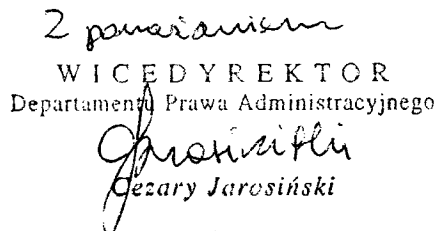 Z poważaniem
WICEDYREKTOR
Departamentu Prawa Administracyjnego
Cezary Jarosiński